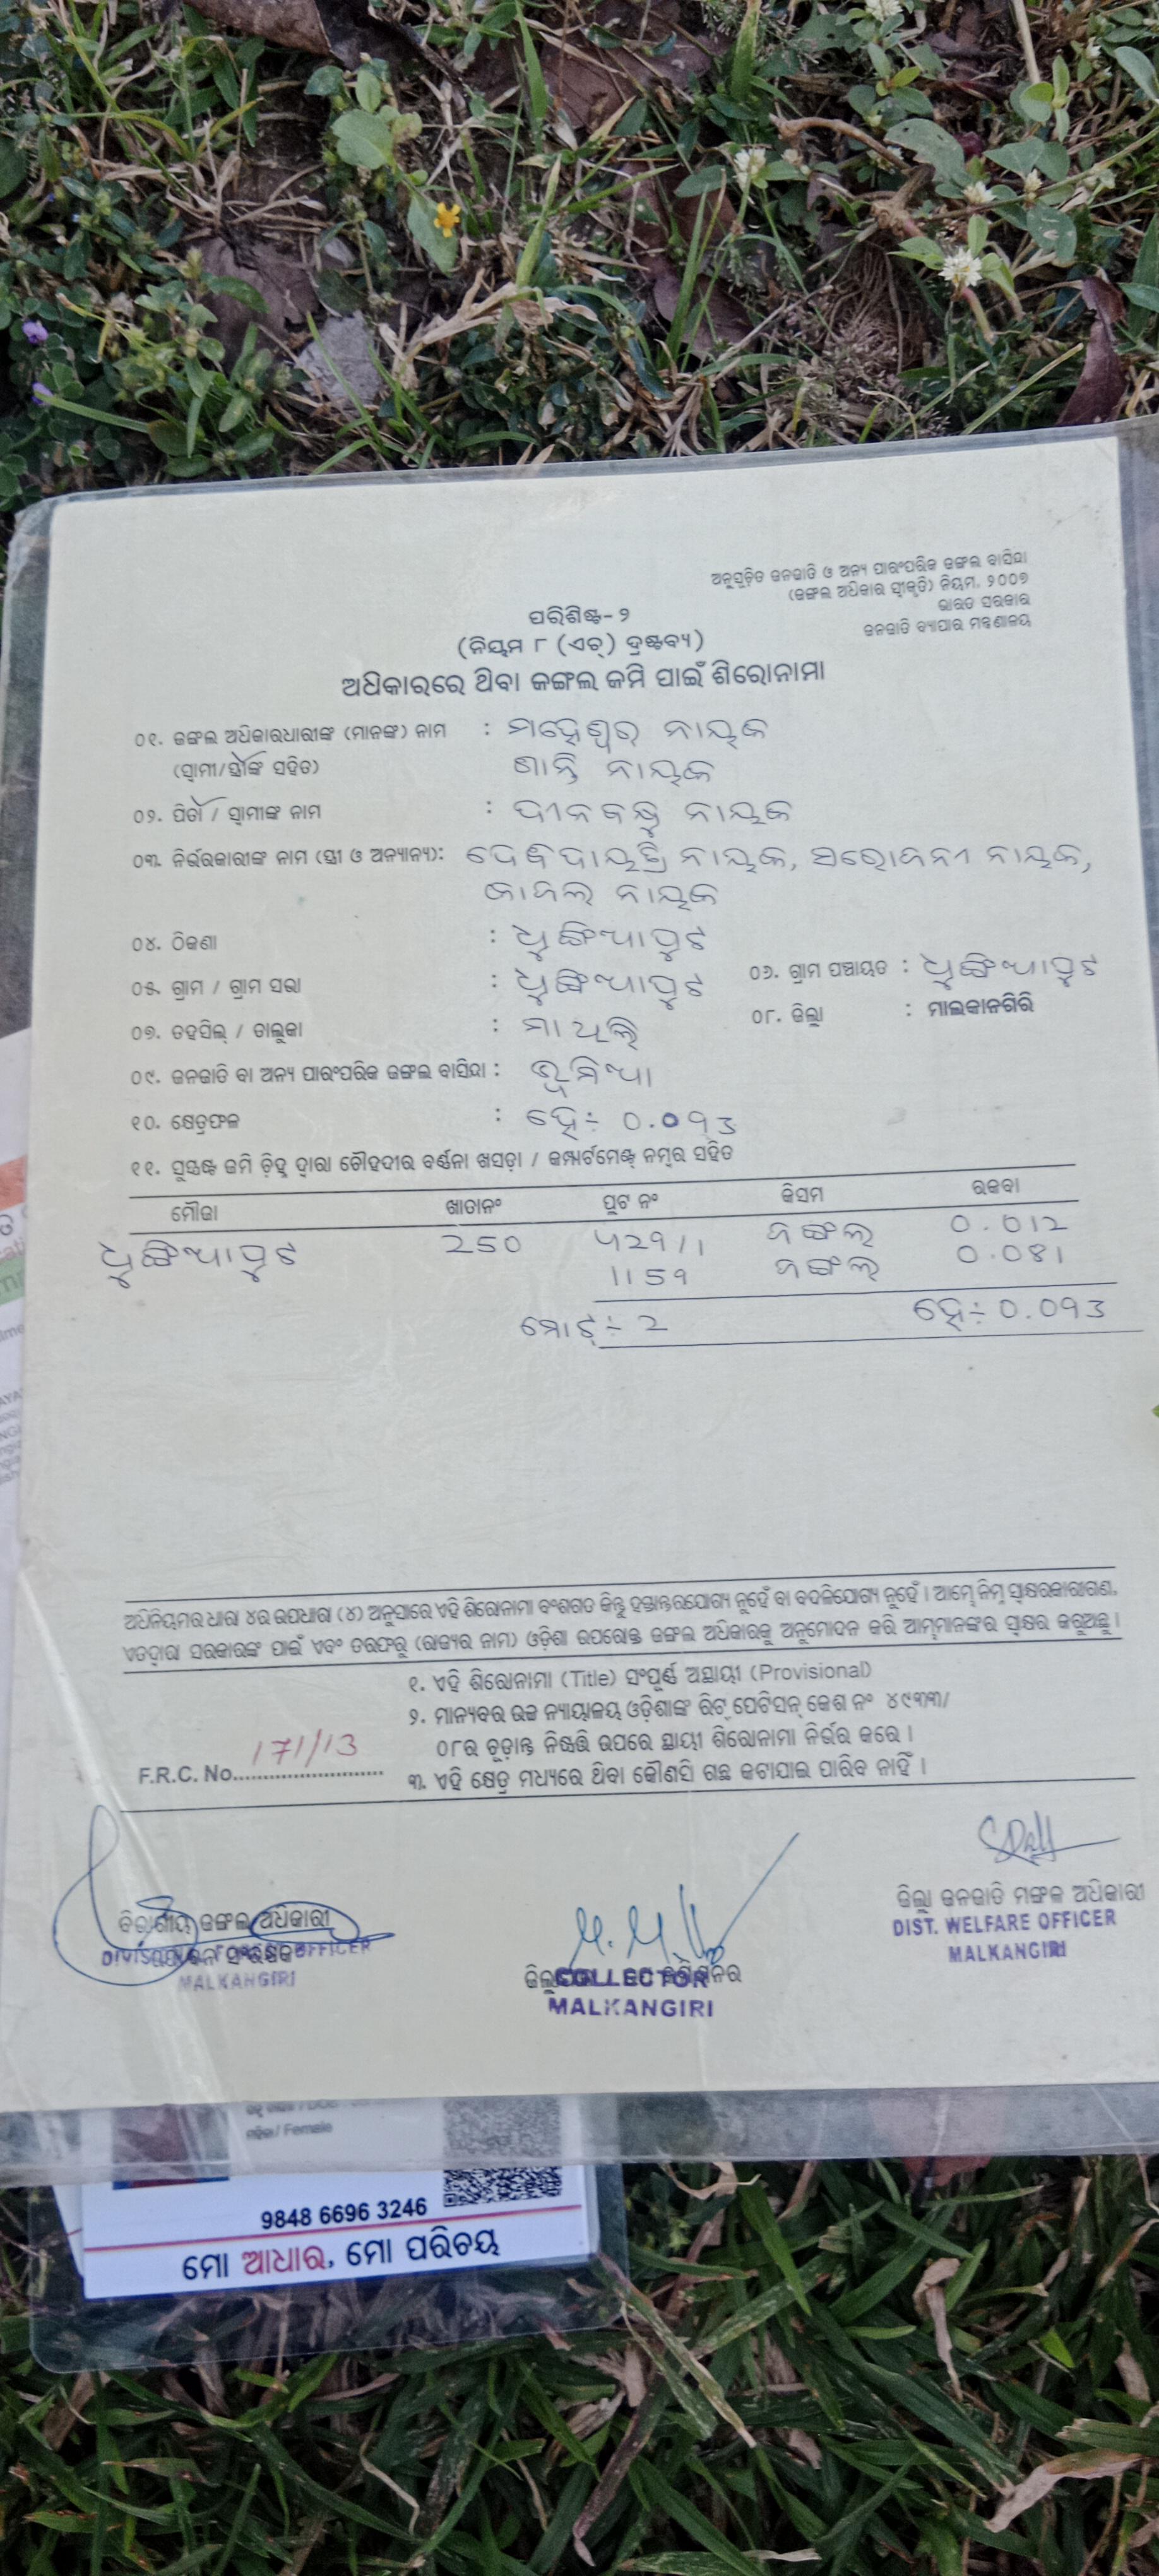 ଅନୁସୂଚିତ ଜନଜାତି ଓ ଅନ୍ୟ ପାରଂପରିକ ଜଙ୍ଗଲ ବାସିନ୍ଦା
(ଜଙ୍ଗଲ ଅଧିକାର ସ୍ୱୀକୃତି) ନିୟମ, ୨୦୦୭
ଭାରତ ସରକାର
ଜନଜାତି ବ୍ୟାପାର ମନ୍ତ୍ରଣାଳୟ
ପରିଶିଷ୍ଟ- ୨
(ନିୟମ ୮ (ଏଚ୍) ଦ୍ରଷ୍ଟବ୍ୟ)
ଅଧିକାରରେ ଥିବା ଜଙ୍ଗଲ ଜମି ପାଇଁ ଶିରୋନାମା
୦୧. ଜଙ୍ଗଲ ଅଧିକାରଧାରୀଙ୍କ (ମାନଙ୍କ) ନାମ : ମହେଶ୍ୱର ନାୟକ
(ସ୍ୱାମୀ/ସ୍ତ୍ରୀଙ୍କ ସହିତ) ଶାନ୍ତି ନାୟକ
୦୨. ପିତା / ସ୍ୱାମୀଙ୍କ ନାମ : ଦୀନବନ୍ଧୁ ନାୟକ
୦୩. ନିର୍ଭରକାରୀଙ୍କ ନାମ (ସ୍ତ୍ରୀ ଓ ଅନ୍ୟାନ୍ୟ): ନାୟକ, ସରୋଜନୀ ନାୟକ,
କାଜଲ ନାୟକ
୦୪. ଠିକଣା : ଧୁଙ୍ଗିଆପୁଟ
୦୫. ଗ୍ରାମ / ଗ୍ରାମ ସଭା : ଧୁଙ୍ଗିଆପୁଟ ୦୬. ଗ୍ରାମ ପଞ୍ଚାୟତ : ଧୁଙ୍ଗିଆପୁଟ
୦୭. ତହସିଲ୍ / ତାଲୁକା : ମାଥିଲି ୦୮. ଜିଲ୍ଲା : ମାଲକାନଗିରି
୦୯. ଜନଜାତି ବା ଅନ୍ୟ ପାରଂପରିକ ଜଙ୍ଗଲ ବାସିନ୍ଦା : ଭୂମିଆ
୧୦. କ୍ଷେତ୍ରଫଳ : ହେ÷ 0.093
୧୧. ସୁସ୍ପଷ୍ଟ ଜମି ଚିହ୍ନ ଦ୍ୱାରା ଚୌହଦୀର ବର୍ଣ୍ଣନା ଖସଡ଼ା / କମ୍ପାର୍ଟମେଣ୍ଟ୍ ନମ୍ବର ସହିତ
ମୌଜା ଖାତାନଂ ପ୍ଲଟ ନଂ କିସମ ରକବା
ଧୁଙ୍ଗିଆପୁଟ 250 ଜଙ୍ଗଲ 0.012
1159 ଜଙ୍ଗଲ 0.081
ମୋଟ୍ ÷ 2 ହେ÷ 0.093
ଅଧିନିୟମର ଧାରା ୪ର ଉପଧାରା (୪) ଅନୁସାରେ ଏହି ଶିରୋନାମା ବଂଶଗତ କିନ୍ତୁ ହସ୍ତାନ୍ତରଯୋଗ୍ୟ ନୁହେଁ ବା ବଦଳିଯୋଗ୍ୟ ନୁହେଁ । ଆମ୍ଭେ ନିମ୍ନ ସ୍ୱାକ୍ଷରକାରୀଗଣ,
ଏତଦ୍ୱାରା ସରକାରଙ୍କ ପାଇଁ ଏବଂ ତରଫରୁ (ରାଜ୍ୟର ନାମ) ଓଡ଼ିଶା ଉପରୋକ୍ତ ଜଙ୍ଗଲ ଅଧିକାରକୁ ଅନୁମୋଦନ କରି ଆମ୍ଭମାନଙ୍କର ସ୍ୱାକ୍ଷର କରୁଅଛୁ ।
୧. ଏହି ଶିରୋନାମା (Title) ସଂପୂର୍ଣ୍ଣ ଅସ୍ଥାୟୀ (Provisional)
୨. ମାନ୍ୟବର ଉଚ୍ଚ ନ୍ୟାୟାଳୟ ଓଡ଼ିଶାଙ୍କ ରିଟ୍ ପେଟିସନ୍ କେଶ ନଂ ୪୯୩୩/
୦୮ର ଚୂଡ଼ାନ୍ତ ନିଷ୍ପତ୍ତି ଉପରେ ସ୍ଥାୟୀ ଶିରୋନାମା ନିର୍ଭର କରେ ।
F.R.C. No. 171/13
୩. ଏହି କ୍ଷେତ୍ର ମଧ୍ୟରେ ଥିବା କୌଣସି ଗଛ କଟାଯାଇ ପାରିବ ନାହିଁ ।
ବିଭାଗୀୟ ଜଙ୍ଗଲ ଅଧିକାରୀ
MALKANGIRI
COLLECTOR
MALKANGIRI
ଜିଲ୍ଲା ଜନଜାତି ମଙ୍ଗଳ ଅଧିକାରୀ
DIST. WELFARE OFFICER
MALKANGIRI
ମହିଳା / Female
9848 6696 3246
ମୋ ଆଧାର, ମୋ ପରିଚୟ